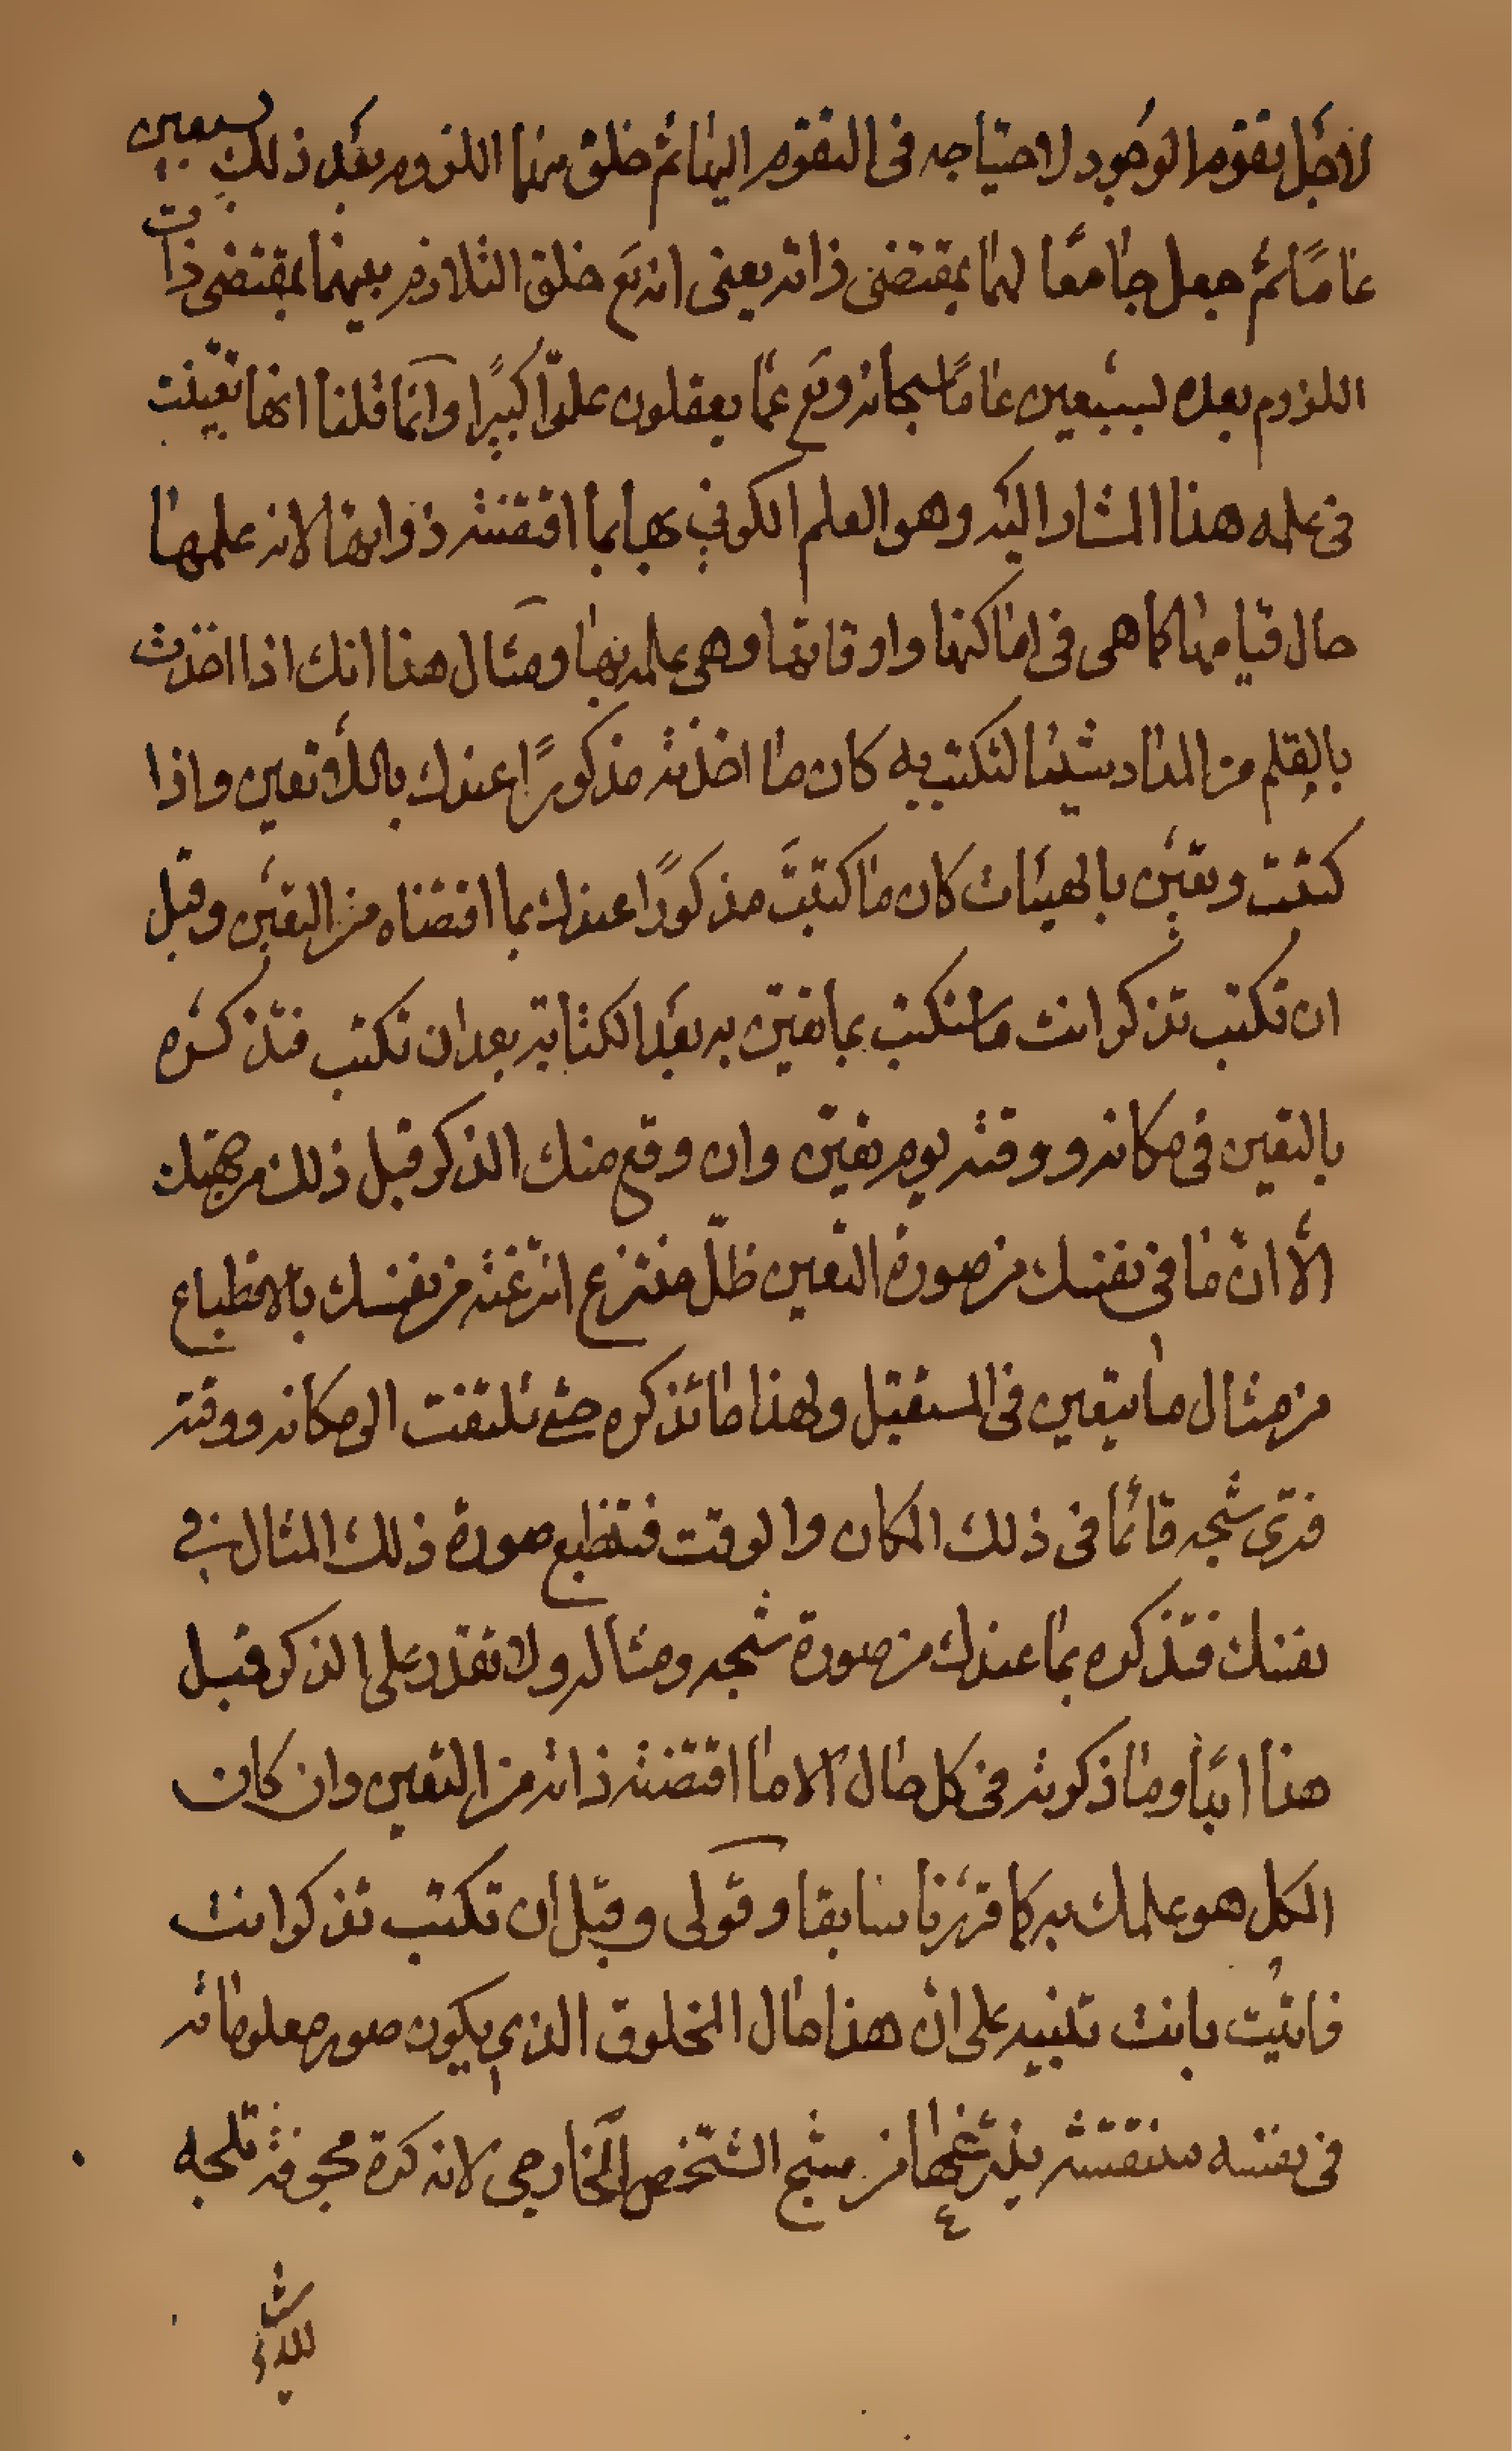 لاجل تقوم الوجود لاحتياجه فى التقوم اليها ثم خلق منها اللزوم بعد ذلك بسبعين
عاما ثم جعل جامعا لهما بمقتضى ذاته يعنى انه تع خلق التلازم بينهما بمقتضى ذات
اللزوم بعده بسبعين عاما سبحانه وتع عما يعقلون علوّا كبيرًا وانما قلنا انها تعينت
فى علمه هذا المشار اليه وهو العلم الكونى بها بما اقتضته ذواتها لانه علمها
حال قيامها كما هى فى اماكنها واوقاتها وهى علمه بها ومثال هذا انك اذا اخذت
بالقلم من المداد شيئا لتكتب به كان ما اخذته مذكورًا عندك باللاتعين واذا
كتبت وتعين بالهيئات كان ما كتبت مذكورًا عندك بما اقتضاه من التعين وقبل
ان تكتب تذكر انت ما ستكتب بما تعين به بعد الكتابة بعد ان تكتب فتذكره
بالتعين فى مكانه ووقته يوم تعين وان وقع منك الذكر قبل ذلك من جهتك
الّا انّ ما فى نفسك من صورة التعين ظلّ منتزع انتزعته من نفسك بالانطباع
من مثال ما يتعين فى المستقبل ولهذا ما تذكره حتى تلتفت الى مكانه ووقته
فترى شبحه قائما فى ذلك المكان والوقت فتنطبع صورة ذلك المثال فى
نفسك فتذكره بما عندك من صورة شبحه ومثاله ولا تقدر على الذكر قبل
هذا ابدًا وما ذكرته فى كل حال الا ما اقتضته ذاته من التعين وان كان
الكل هو علمك به كما قررنا سابقا وقولى وقبل ان تكتب تذكر انت
فاتيت بانت تنبيه على انّ هذا حال المخلوق الذى يكون صور معلوماته
فى نفسه منتقشة ينتزعها من شبح الشخص الخارجى لانه كرة مجوفة